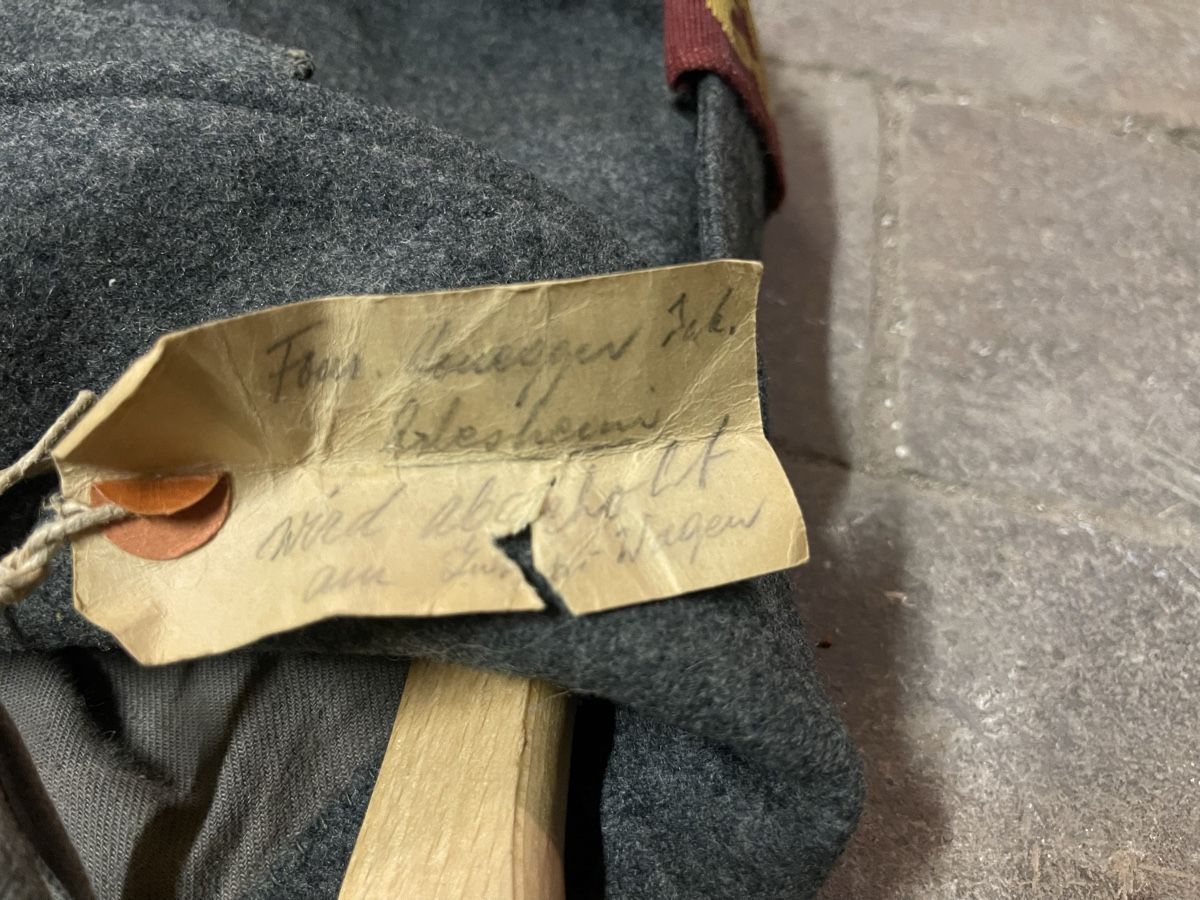 Four. Honegger Jak.
Arlesheim
wird abgeholt
am Wagen